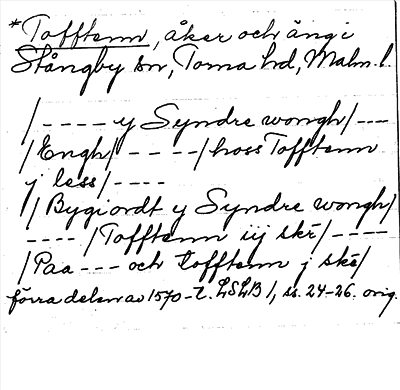 *Tofftenn, åker och äng i
Stångby sn, Torna hd, Malm. l.
/---- y Syndre wongh/----
/Engh/ ----/hoss Tofftenn
j less/----
/Bygiordt y Syndre wongh/
---- /Tofftenn iij skr/----
/Paa --- och tofftenn j skr/
förra delen av 1570-t. LSLB 1, ss. 24-26. orig.